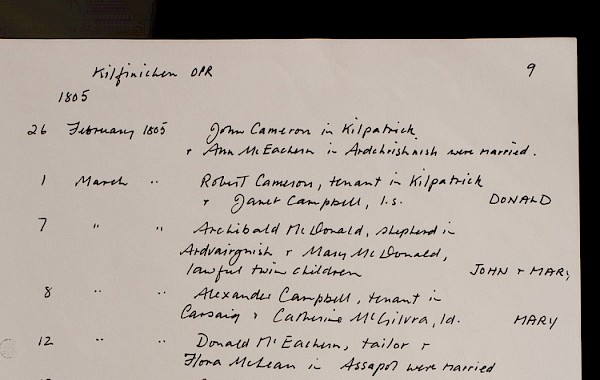 Kilfinichen OPR 9
1805
26 February 1805 John Cameron in Kilpatrick
+ Ann McEachern in Ardchrishnish were married.
1 March " Robert Cameron, tenant in Kilpatrick
+ Janet Campbell, l.s. DONALD
7 " " Archibald McDonald, shepherd in
Ardvairgnish + Mary McDonald,
lawful twin children JOHN + MARY
8 " " Alexander Campbell, tenant in
Carsaig + Catherine McGilvra, ld. MARY
12 " " Donald McEachern, tailor +
Flora McLean in Assapol were married